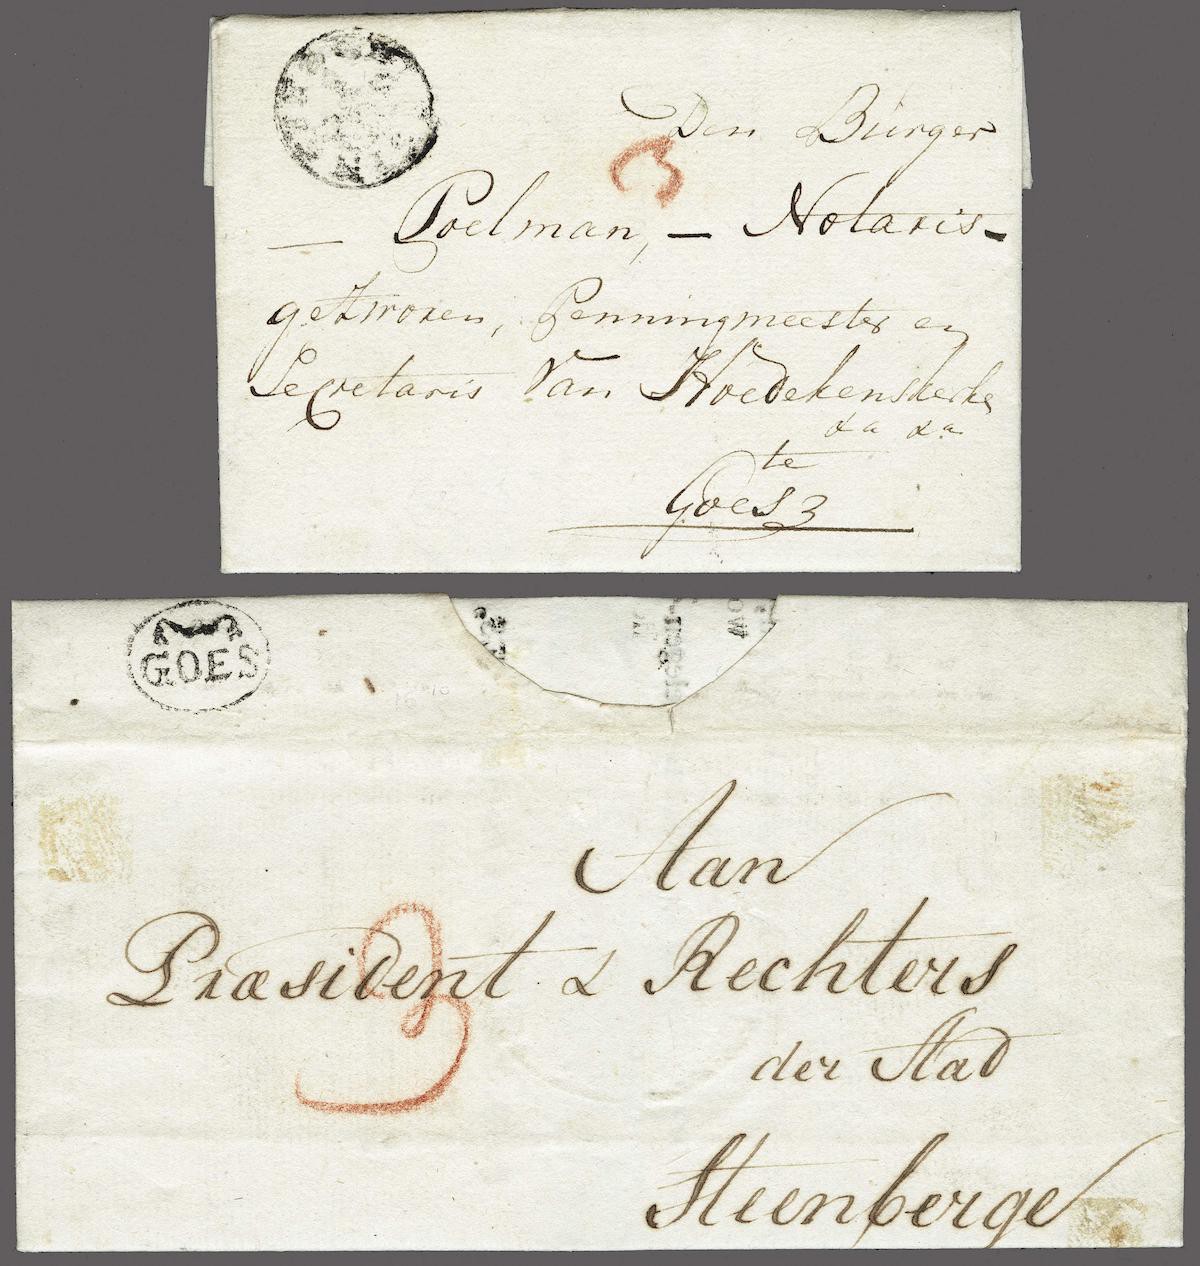 3
Den Bürger
— Poelman, — Notaris -
gezworen, Penningmeester en
Secretaris Van Hoedekenskerke
&a &a
te
Goes
GOES
Aan
Præsident & Rechters
der Stad
Steenberge
3